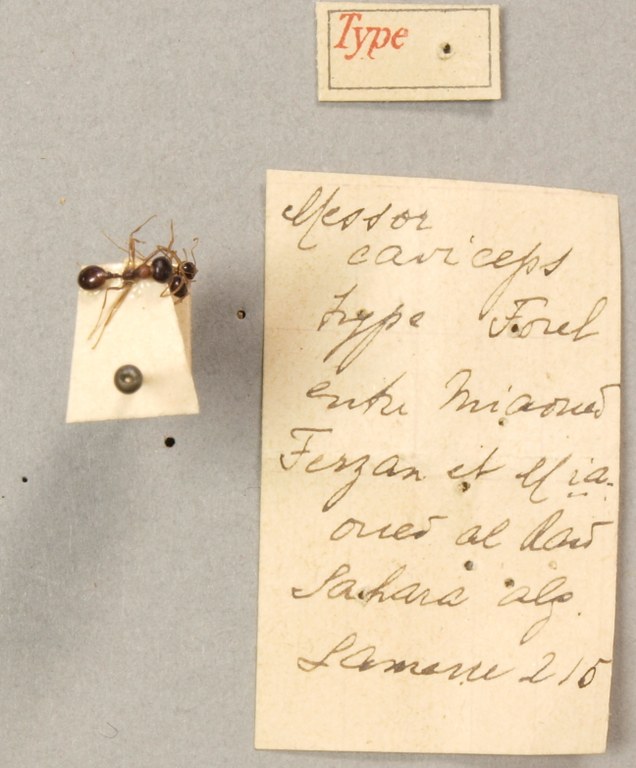 Type
Messor
caviceps
type Forel
entre Miaoued
Ferzan et Mia-
oued al
Sahara alg.
215